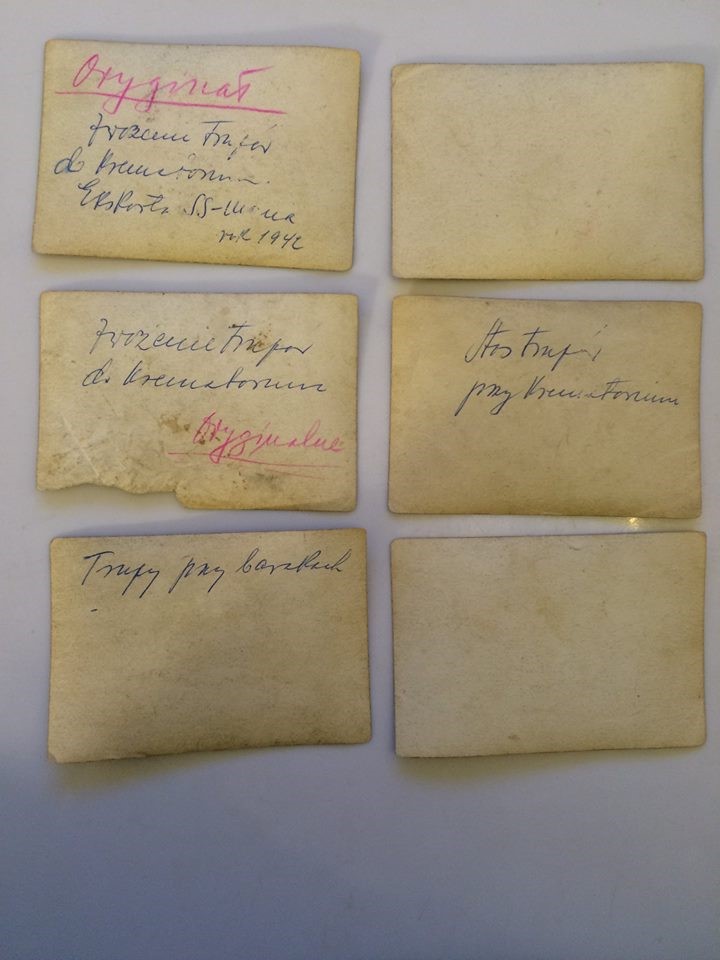 Oryginał
Zwożenie Trupów
do Krematorium.
Eskorta SS-Mana
rok 1942
Zwożenie Trupów
do Krematorium
Oryginalne
Stos Trupów
przy Krematorium
Trupy przy barakach